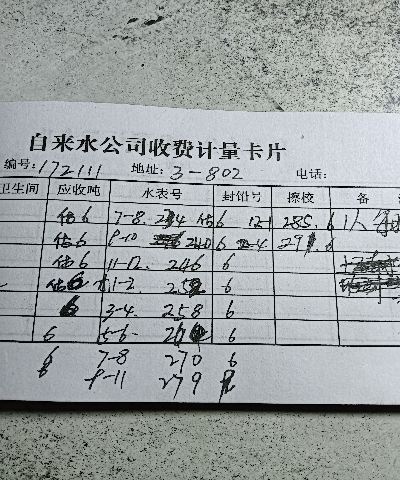 自来水公司收费计量卡片
编号:172111 地址: 3-802 电话:
卫生间 应收吨 水表号 封铅号 擦校 备
估6 7-8. 234 估6 12-1 285. 6 1人
估6 9-10 240 6 2-4 291. 6
估6 11-12. 246 6
估6 1-2. 252 6
6 3-4. 258 6
6 5-6- 6
6 7-8 270 6
8 9-11 279